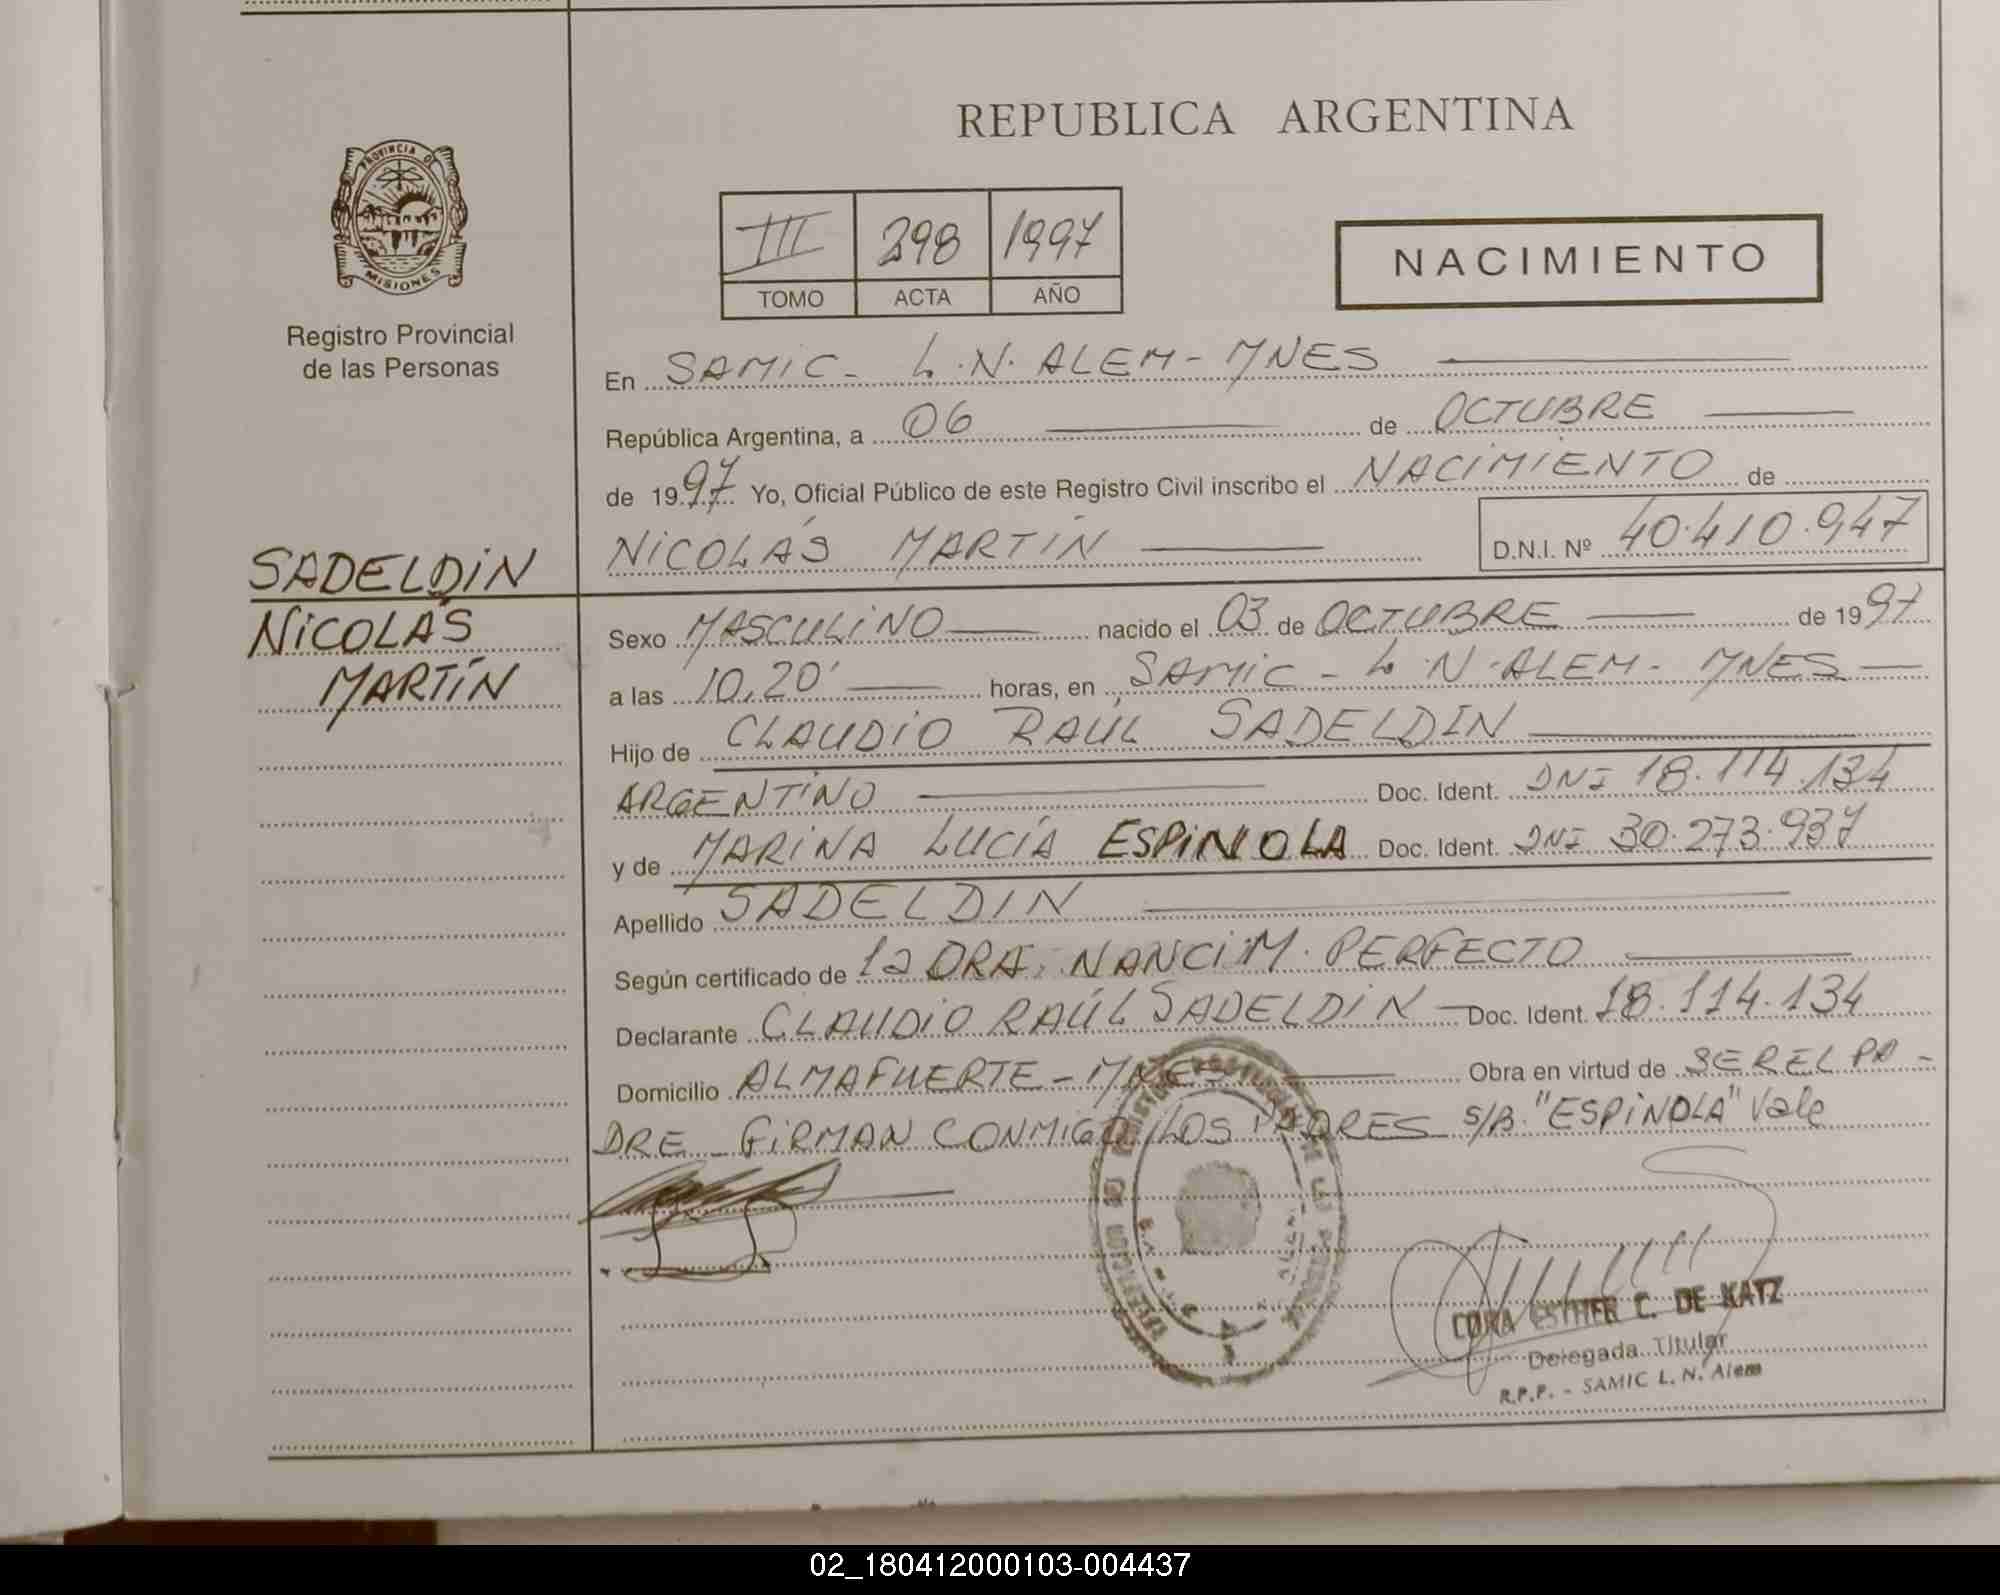 REPUBLICA ARGENTINA
PROVINCIA DE
MISIONES
Registro Provincial
de las Personas
III 298 1997
TOMO ACTA AÑO
NACIMIENTO
En SAMIC - L.N. ALEM - MNES
República Argentina, a 06 de OCTUBRE
de 1997 Yo, Oficial Público de este Registro Civil inscribo el NACIMIENTO de
NICOLÁS MARTÍN D.N.I. Nº 40.410.947
SADELDIN
NICOLÁS
MARTÍN
Sexo MASCULINO nacido el 03 de OCTUBRE de 1997
a las 10,20' horas, en SAMIC - L.N. ALEM - MNES
Hijo de CLAUDIO RAÚL SADELDIN
ARGENTINO Doc. Ident. DNI 18.114.134
y de MARINA LUCÍA ESPINOLA Doc. Ident. DNI 30.273.937
Apellido SADELDIN
Según certificado de la DRA. NANCI M. PERFECTO
Declarante CLAUDIO RAÚL SADELDIN Doc. Ident. 18.114.134
Domicilio ALMAFUERTE - MNES Obra en virtud de SER EL PA-
DRE - FIRMAN CONMIGO LOS PADRES S/B. "ESPINOLA" Vale
CORA ESTHER C. DE KATZ
Delegada Titular
R.P.P. - SAMIC L. N. Alem
02_180412000103-004437